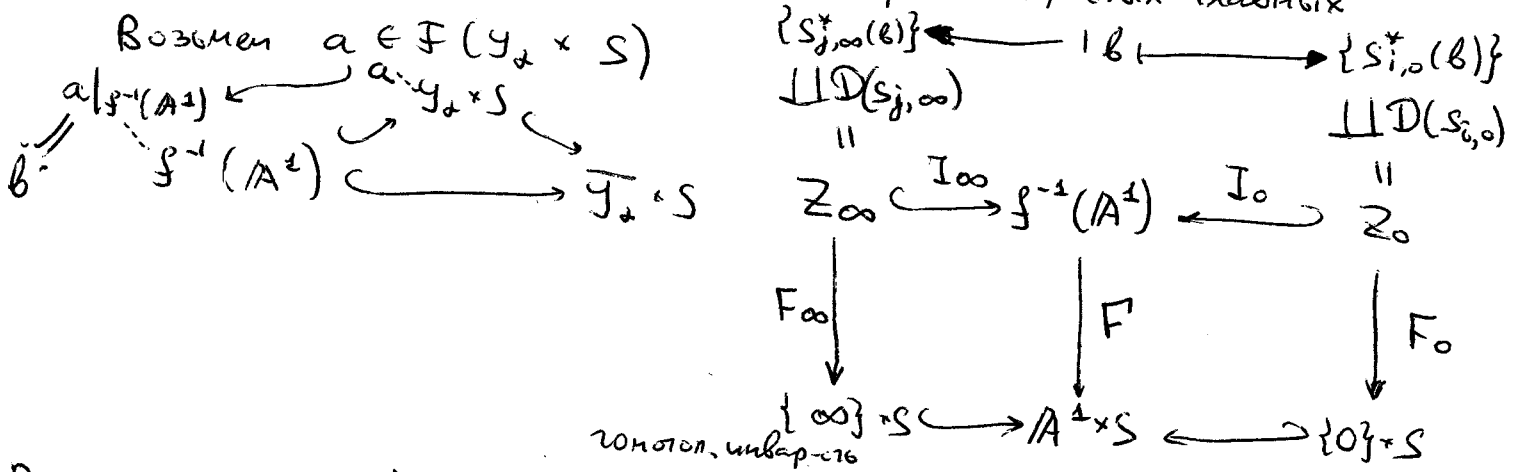 Возьмем a ∈ F(y₂ × S)
a|f⁻¹(A¹) a y₂ × S
b f⁻¹(A¹) y̅₂ × S
{S*j,∞(b)} b {S*i,0(b)}
∐D(Sj,∞) ∐D(Si,0)
= =
Z∞ I∞ f⁻¹(A¹) I₀ Z₀
F∞ F F₀
{∞}×S A¹×S {0}×S
гомотоп. инвар-сть